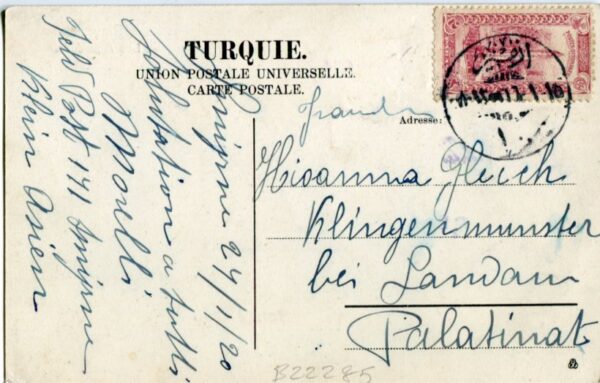 TURQUIE.
UNION POSTALE UNIVERSELLE.
CARTE POSTALE.
Adresse:
Smirne 24/1/20
Salutation a tutti
Morelli
Feld Post 141 Smirne
Klein Asien
Gleich
Klingenmunster
bei Landau
Palatinat
B22285